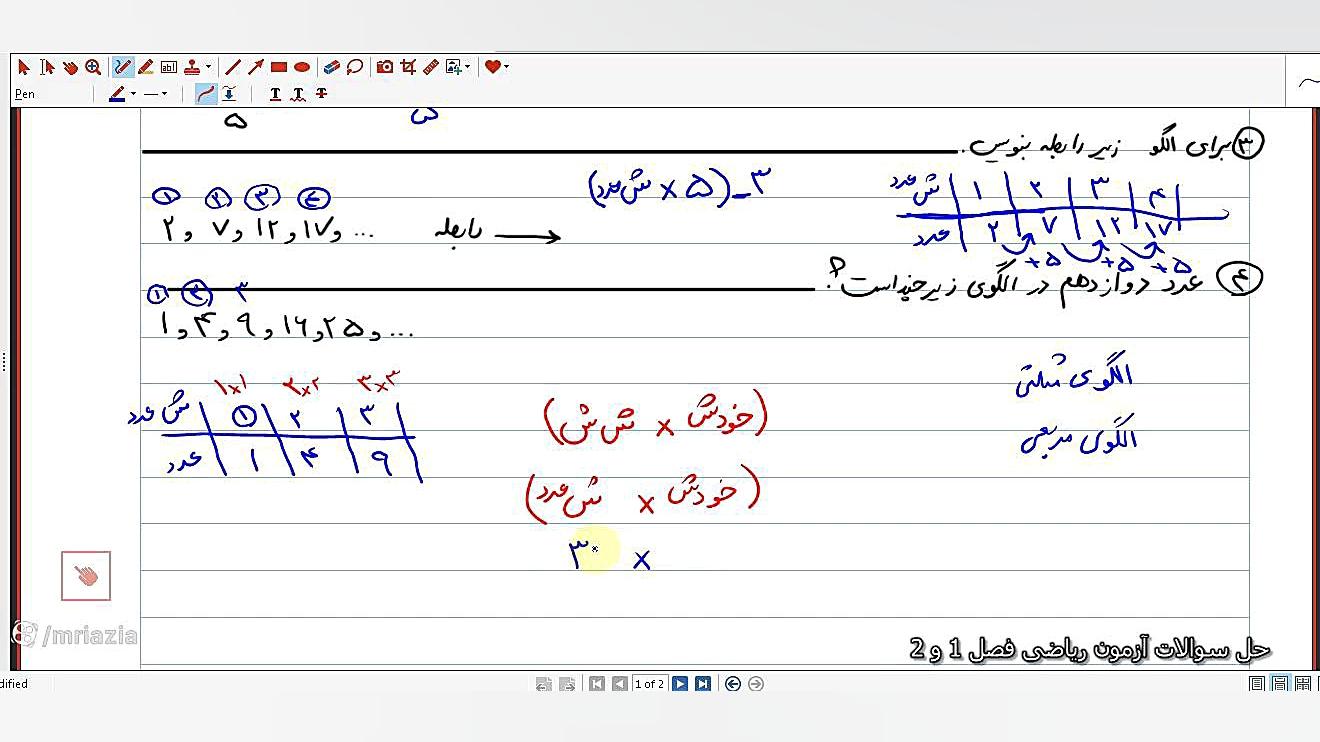 Pen
۵ ۵
۳ برای الگو زیر رابطه بنویس.
ش عدد ۱ ۲ ۳ ۴
عدد ۲ ۷ ۱۲ ۱۷
+۵ +۵ +۵
(ش عدد × ۵) - ۳
۱ ۲ ۳ ۴
۲, ۷, ۱۲, ۱۷, ... رابطه
۴ عدد دوازدهم در الگوی زیر چند است؟
۱ ۲ ۳
۱, ۴, ۹, ۱۶, ۲۵, ...
الگوی مثلثی
الگوی مربعی
۱×۱ ۲×۲ ۳×۳
ش عدد ۱ ۲ ۳
عدد ۱ ۴ ۹
(خودش × ش ش)
(خودش × ش عدد)
۳ ×
/mriazia
حل سوالات آزمون ریاضی فصل 1 و 2
dified
1 of 2